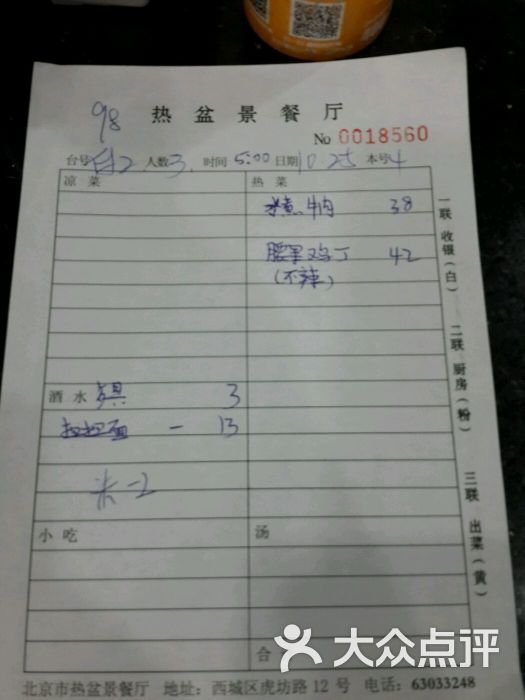 98
热盆景餐厅
No 0018560
台号 人数3 时间5:00 日期10.25 本号4
凉菜 热菜
水煮牛肉 38
腰果鸡丁 42
(不辣)
酒水 具 3
担担面 一 13
米-2
小吃 汤
合
一联 收银(白)
二联 厨房(粉)
三联 出菜(黄)
大众点评
北京市热盆景餐厅 地址: 西城区虎坊路12号 电话: 63033248